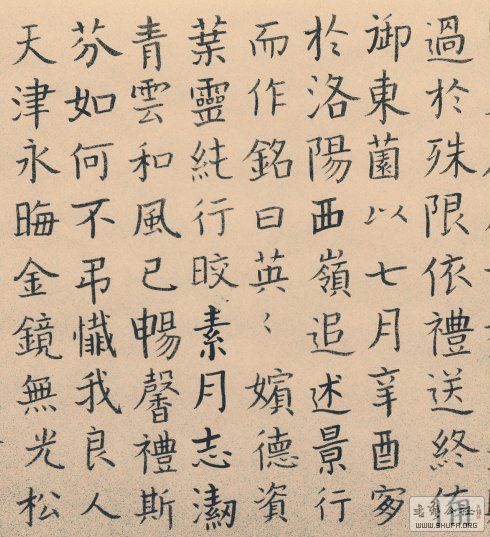 過於殊限依禮送終
御東薗以七月辛酉
於洛陽西嶺追述景行
而作銘曰英〻嬪德資
葉靈純行晈素月志潔
青雲和風已暢馨禮斯
芬如何不弔懴我良人
天津永晦金鏡無光松
WWW.SHUFA.ORG